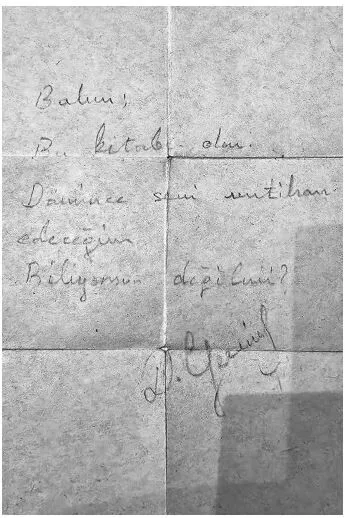 Balım;
Bu kitabı oku.
Dönünce seni imtihan
edeceğim
Biliyorsun değilmi?
D.